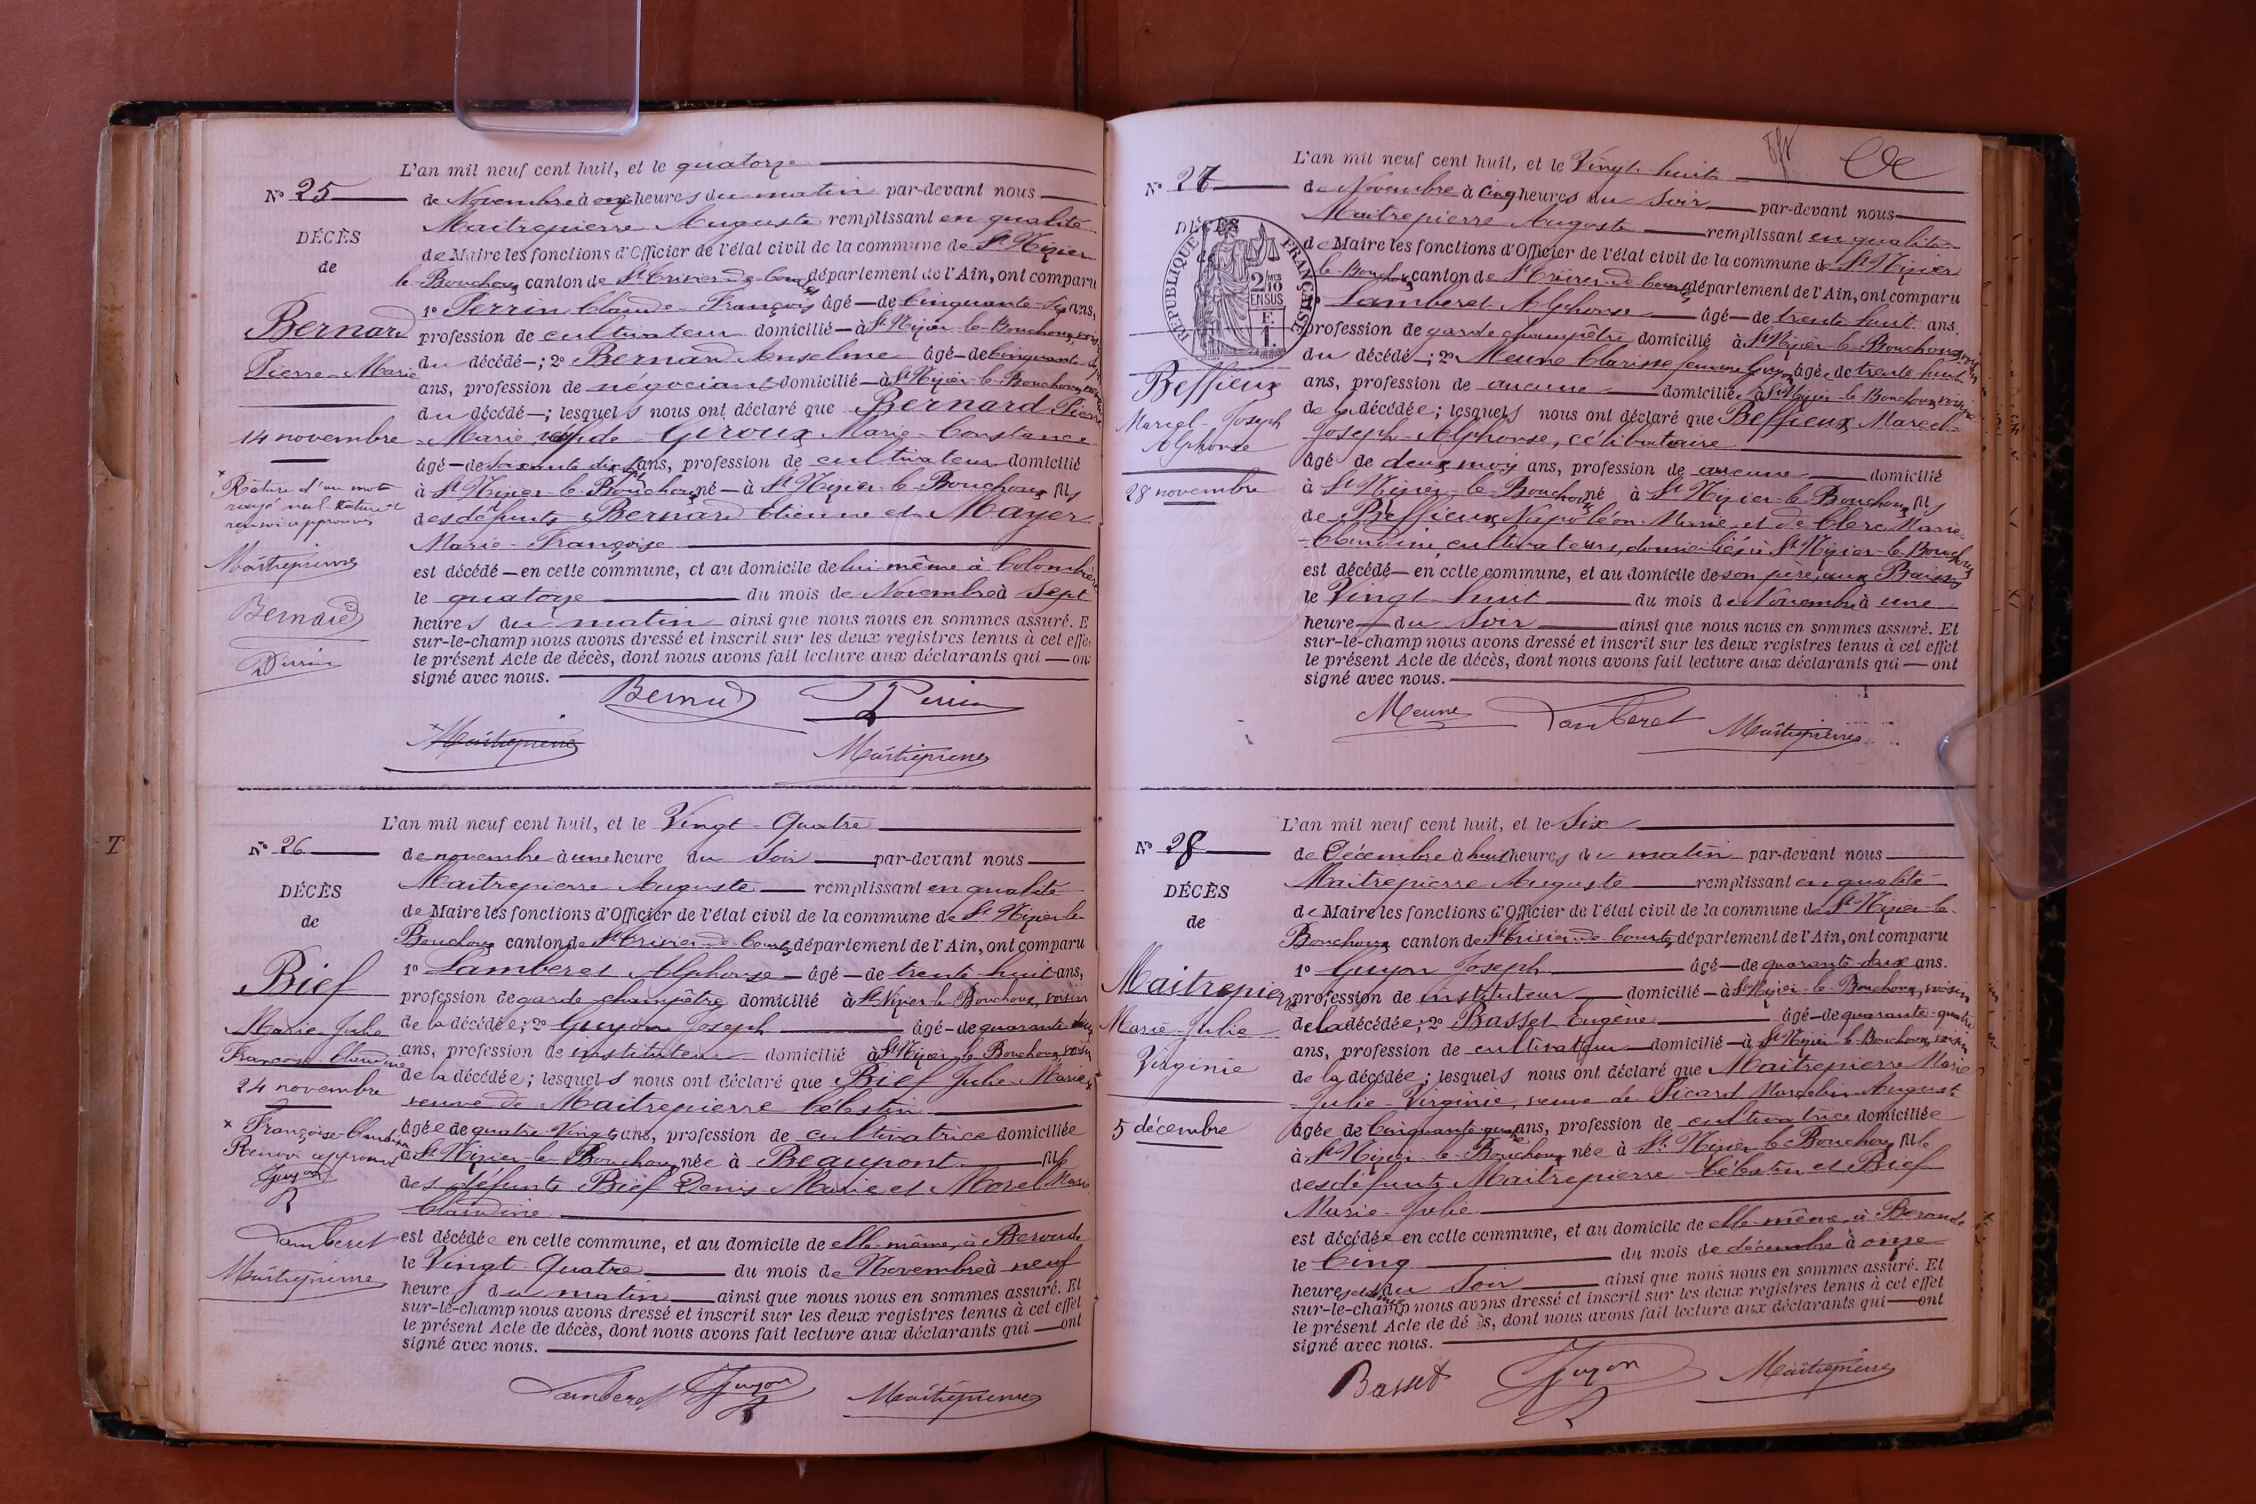 L'an mil neuf cent huit, et le quatorze
N° 25
de Novembre à onze heures du matin par-devant nous
Maitrepierre Auguste remplissant en qualité
DÉCÈS
de Maire les fonctions d'Officier de l'état civil de la commune de St Nizier
de
le Bouchoux canton de St Trivier de Courtes département de l'Ain, ont comparu
1° Perrin Claude-François âgé—de Cinquante-six ans,
Bernard
profession de cultivateur domicilié—à St Nizier-le-Bouchoux, voisin
Pierre-Marie
du décédé—; 2° Bernard Anselme âgé—de Cinquante
ans, profession de négociant domicilié—à St Nizier-le-Bouchoux
du décédé—; lesquels nous ont déclaré que Bernard Pierre
14 novembre
-Marie veuf de Giroux Marie-Constance
âgé—de soixante dix sept ans, profession de cultivateur domicilié
× Rature d'un mot
à St Nizier-le-Bouchoux né—à St Nizier-le-Bouchoux fils
rayé nul
renvoi approuvés
des défunts Bernard Etienne et Mayer
Marie-Françoise
Maitrepierre
est décédé—en cette commune, et au domicile de lui même à Colombier
Bernard
le quatorze du mois de Novembre à sept
heures du matin ainsi que nous nous en sommes assuré. E
sur-le-champ nous avons dressé et inscrit sur les deux registres tenus à cet effe
Perrin
le présent Acte de décès, dont nous avons fait lecture aux déclarants qui—on
signé avec nous.
Bernard Perrin
Maitrepierre
Maitrepierre
L'an mil neuf cent huit, et le Vingt-Quatre
N° 26
de novembre à une heure du soir par-devant nous
Maitrepierre Auguste remplissant en qualité
DÉCÈS
de Maire les fonctions d'Officier de l'état civil de la commune de St Nizier-le
de
Bouchoux canton de St Trivier-de-Courtes département de l'Ain, ont comparu
1° Lamberet Alphonse—âgé—de trente huit ans,
Bief
profession de garde champêtre domicilié à St Nizier-le-Bouchoux, voisin
Marie-Julie
de la décédée; 2° Guyon Joseph âgé—de quarante deux
Françoise Claudine
ans, profession de instituteur domicilié à St Nizier-le-Bouchoux, voisin
de la décédée; lesquels nous ont déclaré que Bief Julie Marie ×
24 novembre
veuve de Maitrepierre Célestin
× Françoise-Claudine
âgée de quatre-Vingts ans, profession de cultivatrice domiciliée
Renvoi approuvé
à St Nizier-le-Bouchoux née à Beaupont fille
Guyon
des défunts Bief Denis Marie et Morel Marie
Claudine
Lamberet
est décédée en cette commune, et au domicile de elle-même, à Beroude
le Vingt-Quatre du mois de Novembre à neuf
Maitrepierre
heures du matin ainsi que nous nous en sommes assuré. Et
sur-le-champ nous avons dressé et inscrit sur les deux registres tenus à cet effet
le présent Acte de décès, dont nous avons fait lecture aux déclarants qui—ont
signé avec nous.
Lamberet Guyon Maitrepierre
T
L'an mil neuf cent huit, et le Vingt-huit
N° 27
de Novembre à Cinq heures du soir par-devant nous
Maitrepierre Auguste remplissant en qualité
DÉCÈS
de Maire les fonctions d'Officier de l'état civil de la commune de St Nizier
RÉPUBLIQUE FRANÇAISE
le Bouchoux canton de St Trivier-de-Courtes département de l'Ain, ont comparu
2/10 EN SUS
1° Lamberet Alphonse âgé—de trente huit ans.
F. 1.
profession de garde champêtre domicilié à St Nizier-le-Bouchoux, voisin
du décédé—; 2° Meune Clarisse femme Guyon âgée de trente huit
Beffieux
ans, profession de aucune domiciliée à St Nizier-le-Bouchoux, voisine
Marcel-Joseph
de la décédée; lesquels nous ont déclaré que Beffieux Marcel-
Alphonse
Joseph-Alphonse, célibataire
âgé de deux mois ans, profession de aucune domicilié
28 novembre
à St Nizier-le-Bouchoux né à St Nizier-le-Bouchoux fils
de Beffieux Napoléon Marie et de Clerc Marie-
Claudine, cultivateurs, domiciliés à St Nizier-le-Bouchoux
est décédé—en cette commune, et au domicile de son père, aux Baisses
le Vingt-huit du mois de Novembre à une
heure—du soir ainsi que nous nous en sommes assuré. Et
sur-le-champ nous avons dressé et inscrit sur les deux registres tenus à cet effet
le présent Acte de décès, dont nous avons fait lecture aux déclarants qui—ont
signé avec nous.
Meune Lamberet Maitrepierre
L'an mil neuf cent huit, et le Six
N° 28
de Décembre à huit heures du matin par-devant nous
Maitrepierre Auguste remplissant en qualité
DÉCÈS
de Maire les fonctions d'Officier de l'état civil de la commune de St Nizier-le-
de
Bouchoux canton de St Trivier-de-Courtes, département de l'Ain, ont comparu
1° Guyon Joseph âgé—de quarante-deux ans.
Maitrepierre
profession de instituteur domicilié—à St Nizier-le-Bouchoux, voisin
Marie-Julie
de la décédée; 2° Basset Eugène âgé—de quarante-quatre
ans, profession de cultivateur domicilié—à St Nizier-le-Bouchoux, voisin
Virginie
de la décédée; lesquels nous ont déclaré que Maitrepierre Marie
Julie-Virginie, veuve de Picard Marcelin-Auguste
5 décembre
âgée de Cinquante-quatre ans, profession de cultivatrice domiciliée
à St Nizier-le-Bouchoux née à St Nizier-le-Bouchoux fille
des défunts Maitrepierre Célestin et Bief
Marie-Julie
est décédée en cette commune, et au domicile de elle-même, à Beroude
le Cinq du mois de décembre à onze
heures et demie du soir ainsi que nous nous en sommes assuré. Et
sur-le-champ nous avons dressé et inscrit sur les deux registres tenus à cet effet
le présent Acte de décès, dont nous avons fait lecture aux déclarants qui—ont
signé avec nous.
Basset Guyon Maitrepierre